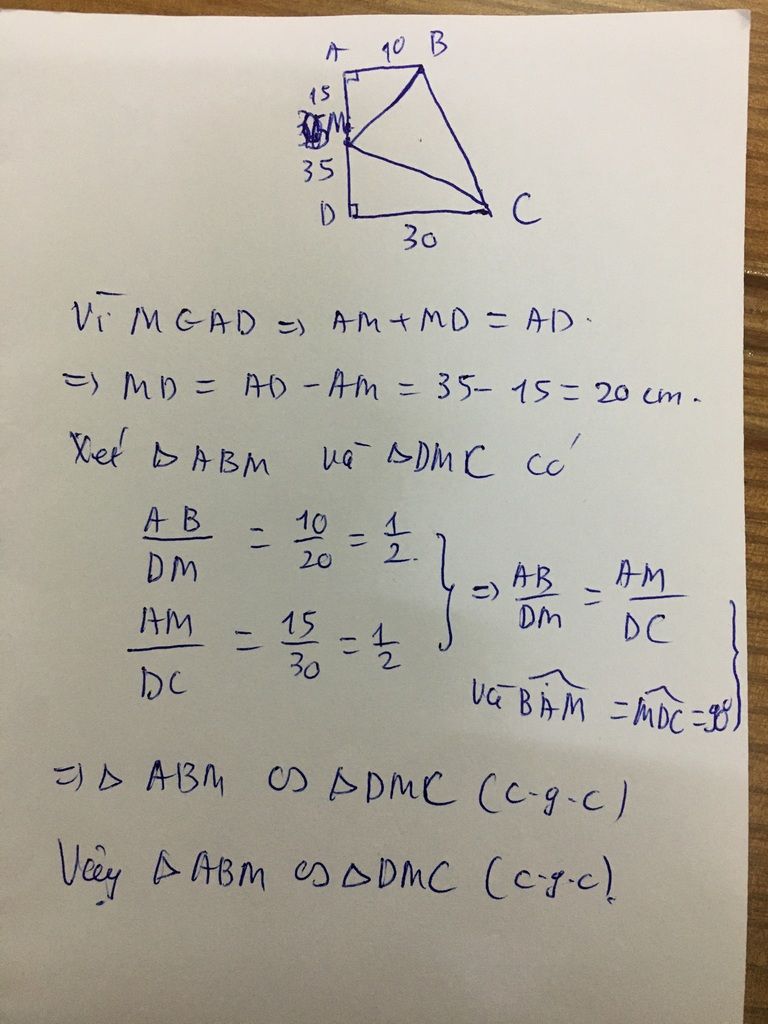 A 10 B
15
M
35
D C
30
Vì M ∈ AD => AM + MD = AD.
=> MD = AD - AM = 35 - 15 = 20 cm.
Xét Δ ABM và ΔDMC có
AB/DM = 10/20 = 1/2.
AM/DC = 15/30 = 1/2
} => AB/DM = AM/DC
và BAM = MDC = 90° }
=> Δ ABM ∽ ΔDMC (c-g-c)
Vậy Δ ABM ∽ ΔDMC (c-g-c).